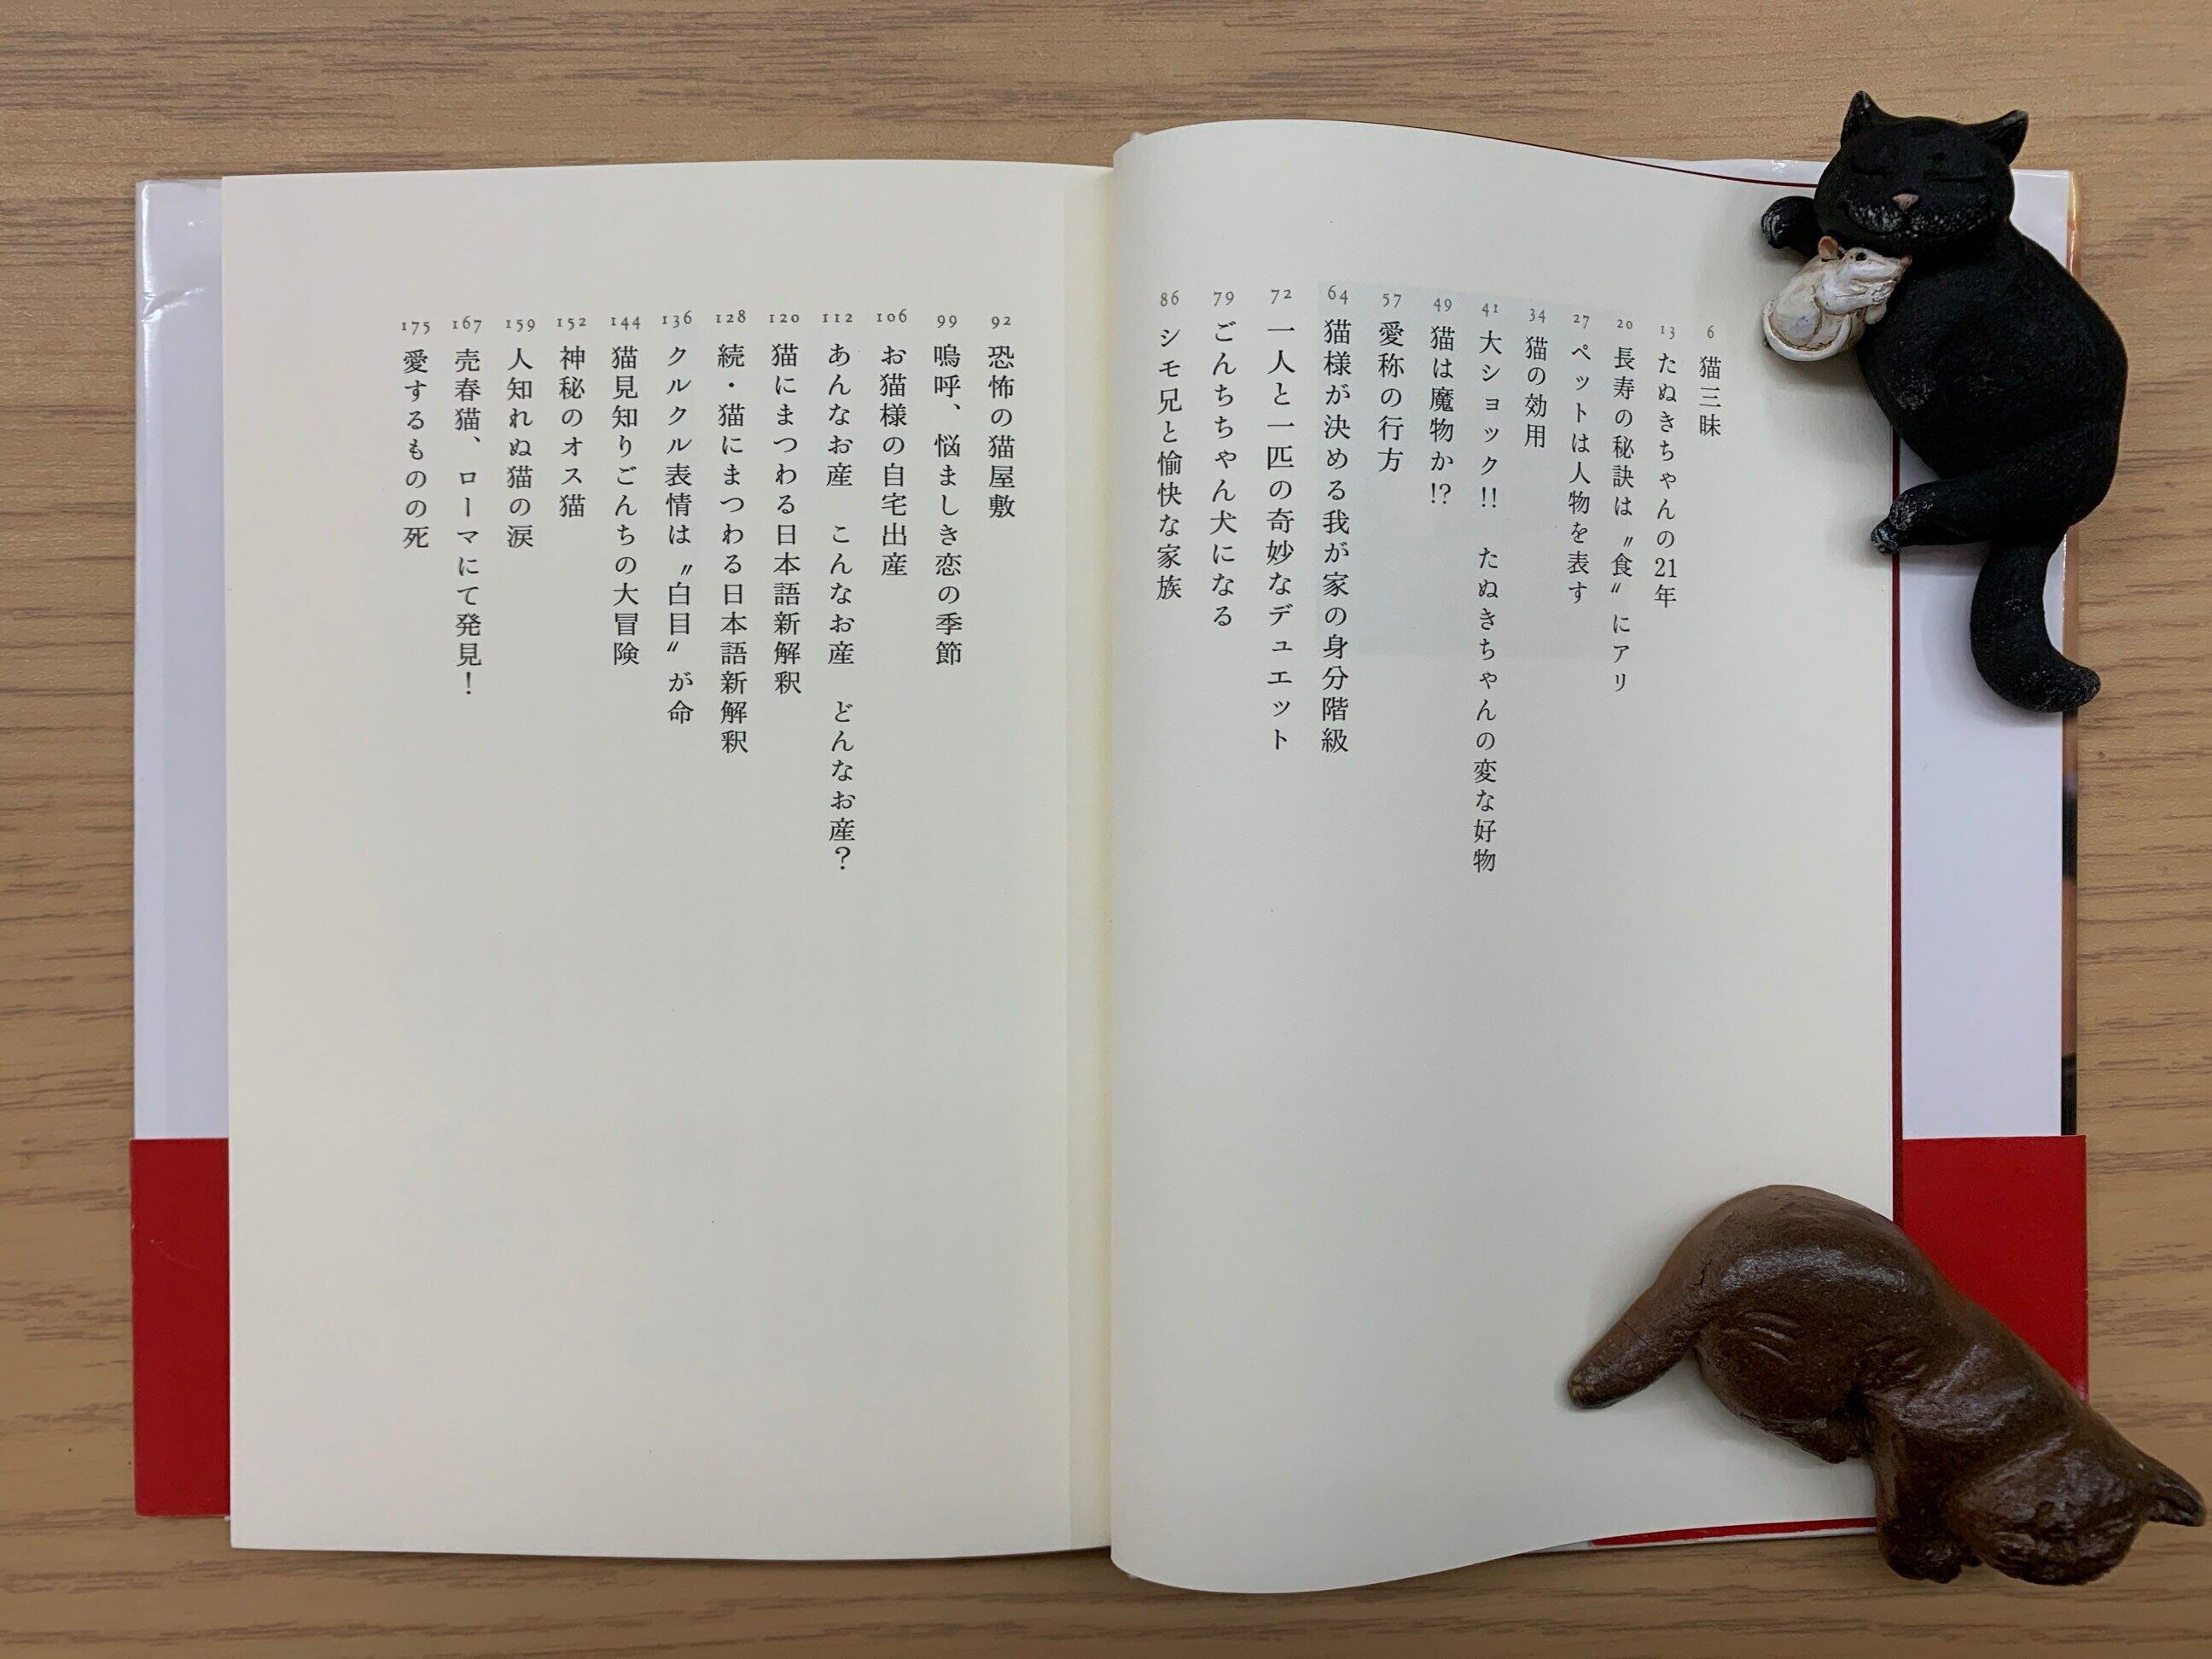 6 猫三昧
13 たぬきちゃんの21年
20 長寿の秘訣は〝食〟にアリ
27 ペットは人物を表す
34 猫の効用
41 大ショック!! たぬきちゃんの変な好物
49 猫は魔物か!?
57 愛称の行方
64 猫様が決める我が家の身分階級
72 一人と一匹の奇妙なデュエット
79 ごんちちゃん犬になる
86 シモ兄と愉快な家族
92 恐怖の猫屋敷
99 嗚呼、悩ましき恋の季節
106 お猫様の自宅出産
112 あんなお産 こんなお産 どんなお産?
120 猫にまつわる日本語新解釈
128 続・猫にまつわる日本語新解釈
136 クルクル表情は〝白目〟が命
144 猫見知りごんちの大冒険
152 神秘のオス猫
159 人知れぬ猫の涙
167 売春猫、ローマにて発見!
175 愛するものの死